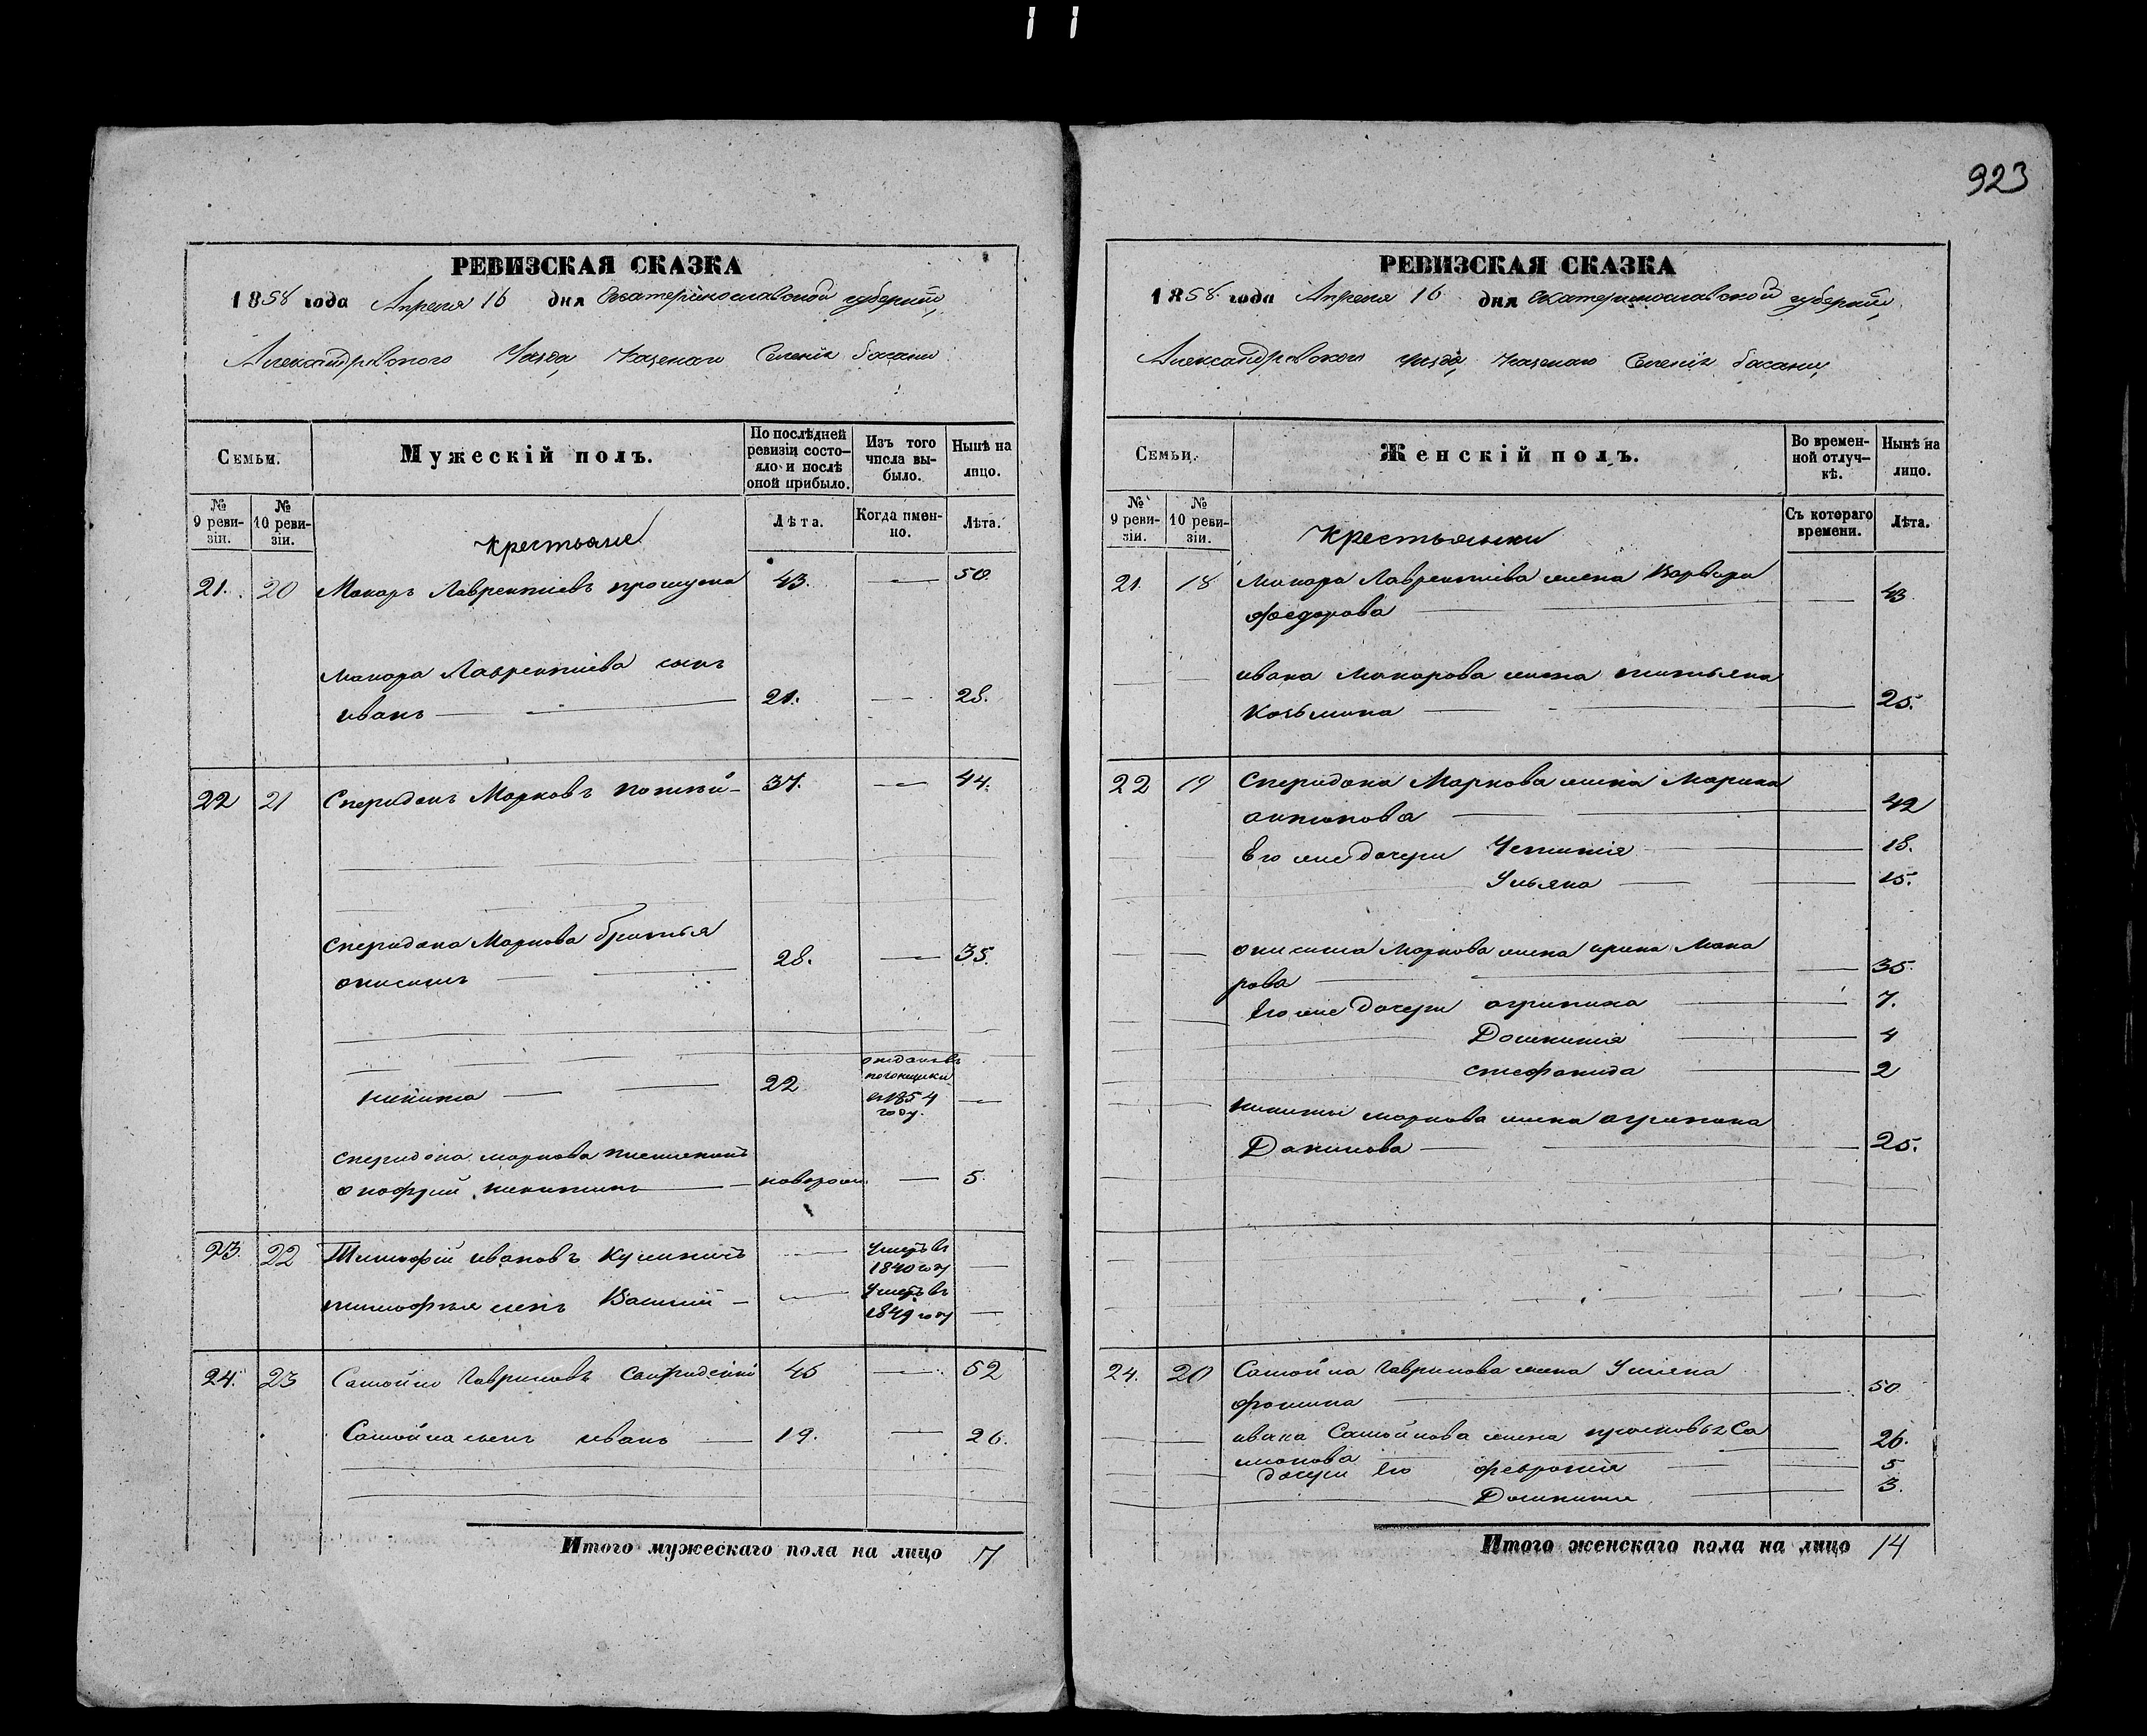 923
РЕВИЗСКАЯ СКАЗКА
1858 года Апреля 16 дня Екатеринославской губерніи,
Александровского Уезда, Казенаго Селенія басани
Семьи.
Мужескій полъ.
По послѣдней ревизіи состо-
яло и послѣ
оной прибыло.
Изъ того
числа вы-
было.
Нынѣ на
лицо.
№
9 реви-
зіи.
№
10 реви-
зіи.
Крестьяне
Лѣта.
Когда имен-
но.
Лѣта.
21. 20 Макаръ Лаврентіевъ 43. — 50.
Макара Лаврентіева сынъ
иванъ — 21. — 28.
22 21 Спиридонъ Марковъ 37. — 44.
Спиридона Маркова братья
онисимъ — 28. — 35.
никита — 22
в 1854
году. —
Спиридона маркова племянникъ
онофрий никитинъ — новорож — 5.
23. 22 Тимофій ивановъ — Умеръ въ
1840 году —
тимофея сынъ Василий — — Умеръ въ
1849 году —
24. 23 Самойло Гавриловъ 45 — 52
Самойла сынъ иванъ — 19. — 26.
Итого мужескаго пола на лицо 7
РЕВИЗСКАЯ СКАЗКА
1858 года Апреля 16 дня Екатеринославской губерніи,
Александровскаго уезда, Казенаго Селенія басани,
Семьи.
Женскій полъ.
Во времен-
ной отлуч-
кѣ.
Нынѣ на
лицо.
№
9 реви-
зіи.
№
10 реви-
зіи.
Крестьянки
Съ котораго
времени.
Лѣта.
21. 18 Макара Лаврентіева жена Варвара
федорова — 43.
ивана Макарова жена татьяна
Козьмина — 25.
22 19 Спиридона Маркова жена Марина
антонова — 42
Его же дочери — 18.
Ульяна — 15.
онисима Маркова жена ирина Мака
рова — 35.
Его же дочери агрипина — 7.
Домникия — 4
стефанида — 2
никиты маркова жена агрипина
Данилова — 25.
24. 20 Самойла Гаврилова жена Ульяна
фомина — 50
ивана Самойлова жена прасковья Са
— 26.
дочери Его феврония — 5
Домникия — 3.
Итого женскаго пола на лицо 14